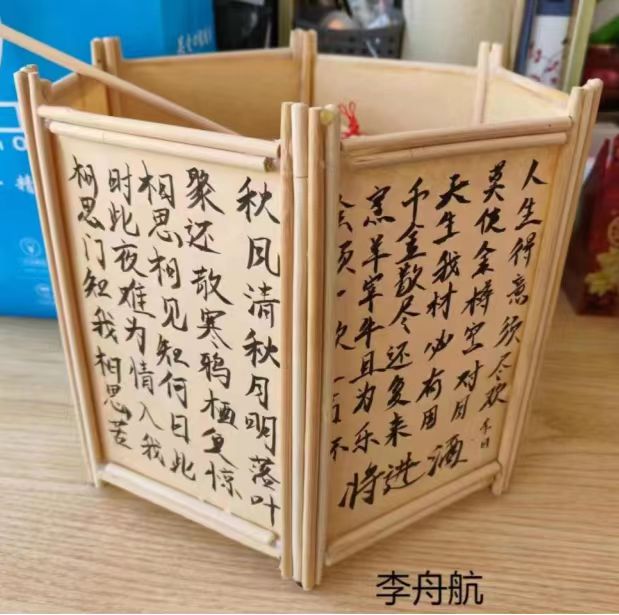 人生得意须尽欢
莫使金樽空对月
天生我材必有用
千金散尽还复来
烹羊宰牛且为乐
会须一饮
将进酒
秋风清秋月明落叶
聚还散寒鸦栖复惊
相思相见知何日此
时此夜难为情入我
相思门知我相思苦
李舟航